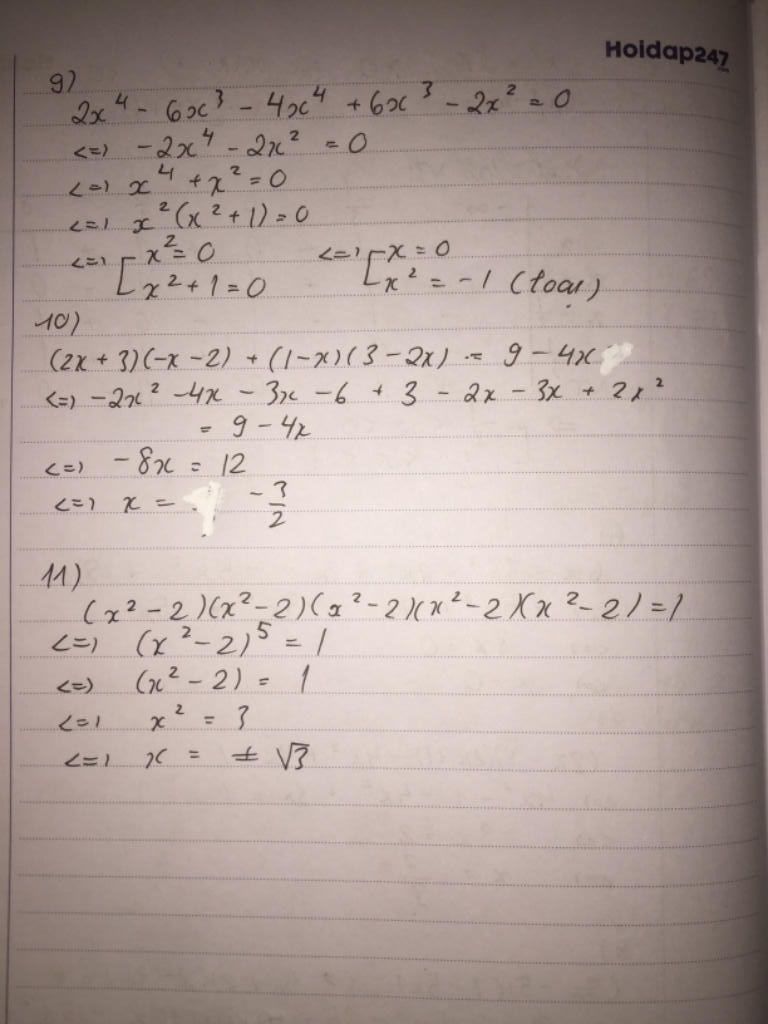 Hoidap247
9)
2x⁴ - 6x³ - 4x⁴ + 6x³ - 2x² = 0
<=> -2x⁴ - 2x² = 0
<=> x⁴ + x² = 0
<=> x²(x² + 1) = 0
<=> [x² = 0 <=> [x = 0
x² + 1 = 0 x² = -1 (loại)
10)
(2x + 3)(-x - 2) + (1 - x)(3 - 2x) = 9 - 4x
<=> -2x² - 4x - 3x - 6 + 3 - 2x - 3x + 2x²
= 9 - 4x
<=> -8x = 12
<=> x = -3/2
11)
(x² - 2)(x² - 2)(x² - 2)(x² - 2)(x² - 2) = 1
<=> (x² - 2)⁵ = 1
<=> (x² - 2) = 1
<=> x² = 3
<=> x = ± √3